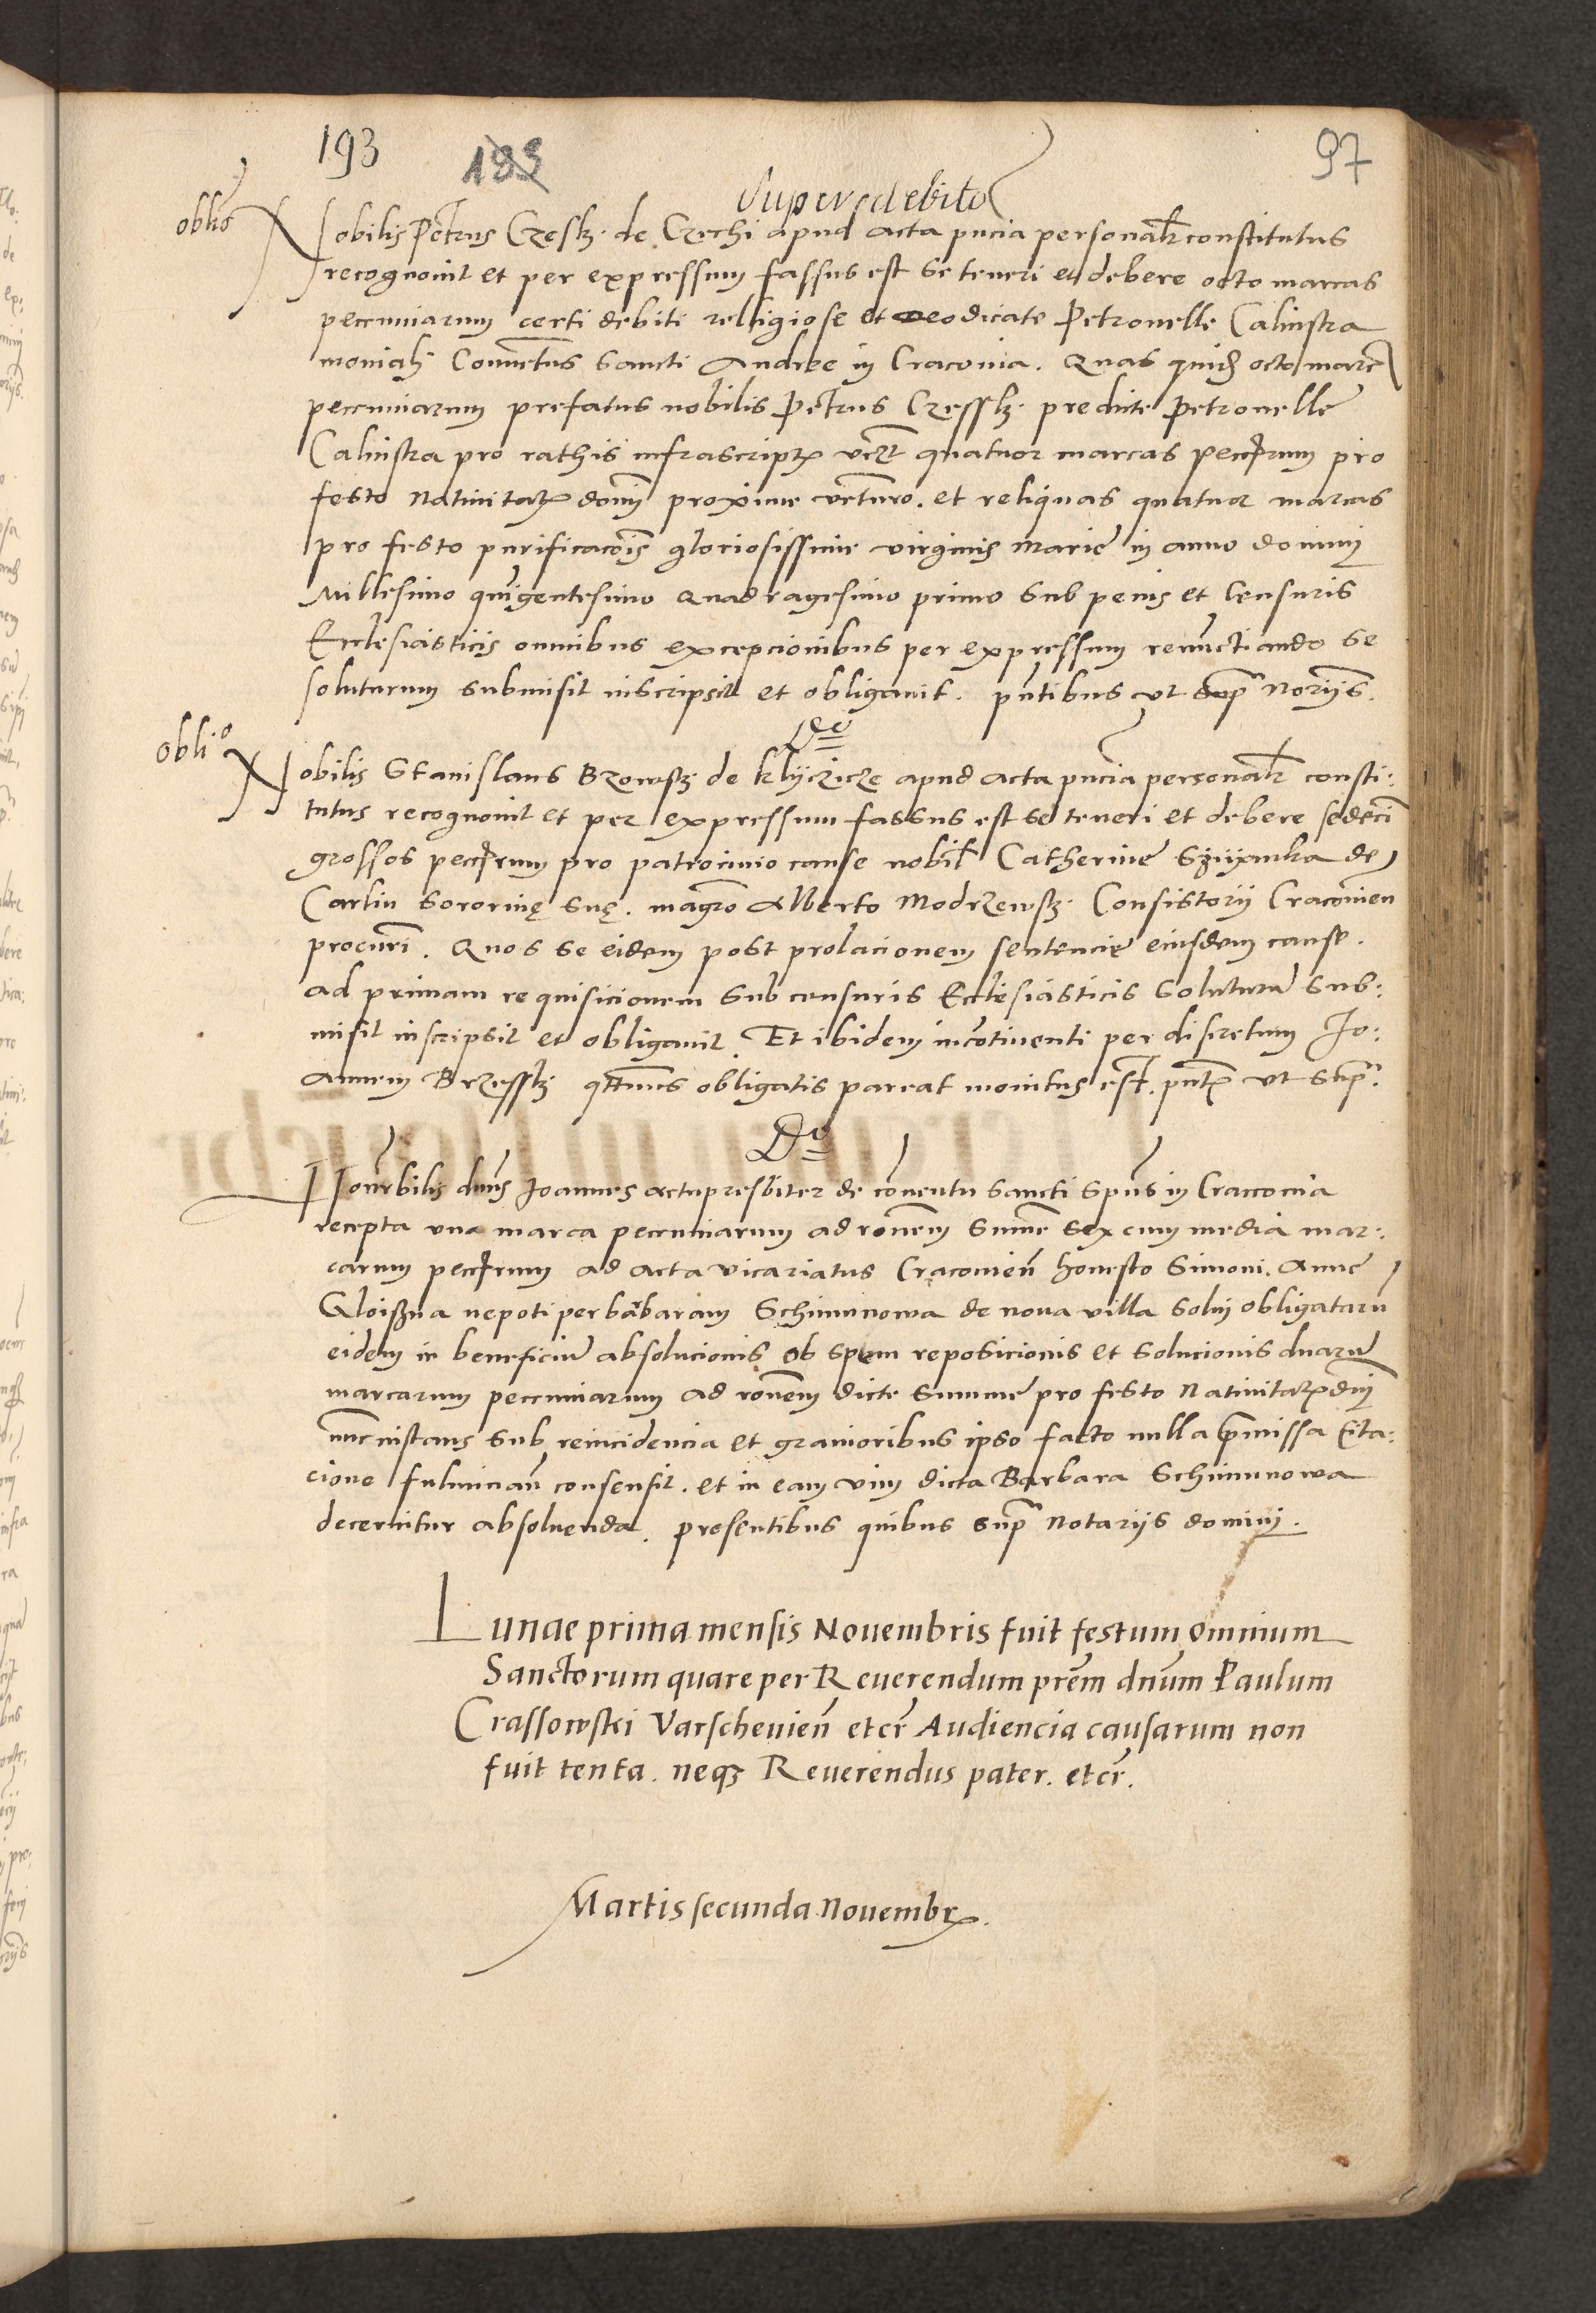 193 193 97
Super debito
oblig
Nobilis Petrus Czesk de Czechi apud acta pncia personalr constitutus
recognouit et per expressum fassus est se teneri et debere octo marcas
pecuniarum certi debiti religiose et deodicate Petronelle Calinska
moniali Conuentus Sancti Andree in Cracouia. Quas quid octo marc
pecuniarum prefatus nobilis Petrus Czessk predicte Petronelle
Calinska pro rathis infrascript vczt quatuor marcas peccrum pro
festo natiuitat domi proxime venturo. et reliquas quatuor marcas
pro festo purificacois gloriosissime virginis Marie in anno domini
Millesimo quigentesimo Quadragesimo primo sub penis et Censuris
Ecclesiasticis omnibus excepcionibus per expressum renunctiando se
soluturum submisit inscripsit et obligauit. pntibus vt supra Noriis.
Do
obligo
Nobilis Stanislaus Brzowsk de Klyczicze apud acta pncia personalr consti:
tutus recognouit et per expressum fassus est se teneri et debere sedeci
grossos peccrum pro patrocinio cause nobil Catherine de
Carlin sororine sue. magro Alberto Modrzewsk Consistorii Cracouien
procuri. Quos se eidem post prolacionem sentencie eiusdem cause.
ad primam requisicionem sub censuris Ecclesiasticis soluturu sub:
misit inscripsit et obligauit. Et ibidem incontinenti per discretum Jo:
annem Brzessk qtnus obligatis pareat monitus est. pntes vt supra.
Do
Honorbilis dnus Joannes actupresbiter de conuentu Sancti Spus in Craccouia
recepta vna marca pecuniarum ad ronem summe sex cum media mar:
carum peccrum ad acta vicariatus Cracouien honesto Simoni. Anne
Gloiszna nepoti per barbaram Schimunowa de noua villa solui obligataru
eidem in beneficiu absolucionis ob spem reposicionis et solucionis duaru
marcarum pecuniarum ad ronem dicte summe pro festo Natiuitat dni
nunc instans sub reincidencia et grauioribus ipso facto nulla pmissa Cita:
cione fulminan consensit. et in eam vim dicta Barbara Schimunowa
decernitur absoluenda. presentibus quibus supra Notariis domini.
Lunae prima mensis Nouembris fuit festum omnium
Sanctorum quare per Reuerendum prem dnum Paulum
Crassowski Varscheuien etcr Audiencia causarum non
fuit tenta. neq3 Reuerendus pater. etcr.
Martis secunda Nouembr